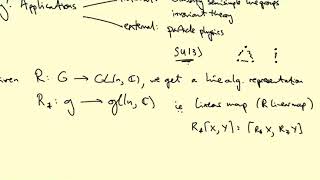 Applications
semisimple Lie groups
invariant theory
external: particle physics
SU(3)
given R: G → GL(n, ℂ), we get a Lie alg. representation
R_*: g → gl(n, ℂ) ie linear map (ℝ linear map)
R_*[X, Y] = [R_* X, R_* Y]